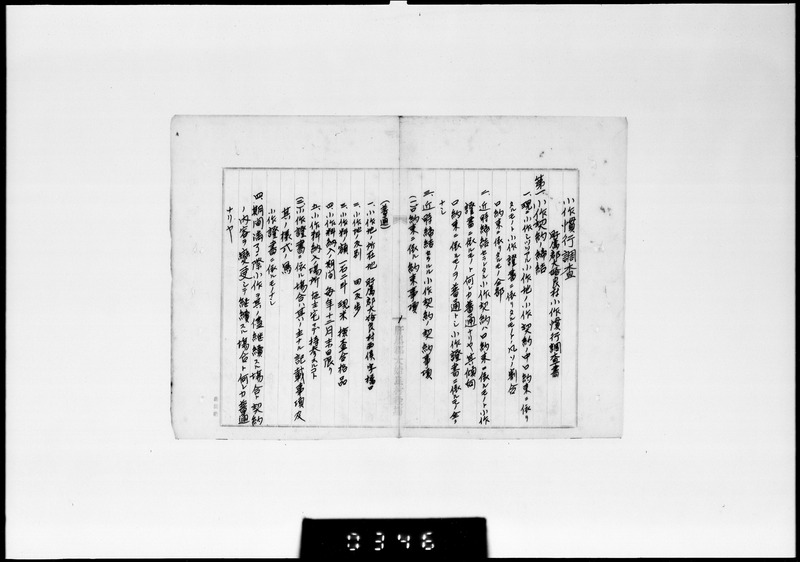 小作慣行調査
貯属郡大姶良村小作慣行調査書
第一、小作契約ノ締結
一、現ニ小作シツツアル小作地ノ小作契約ノ中口約束ニ依リ
タルモノト小作證書ニ依リタルモノトノ凡ソノ割合
口約束ニ依リタルモノ全部
二、近時締結セラルル小作契約ハ口約束ニ依ルモノト小作
證書ニ依ルモノト何レカ普通ナリヤ其傾向
口約束ニ依ルモノヲ普通トシ小作證書ニ依ルモノ
ナシ
三、近時締結セラルル小作契約ノ契約事項
(一)口約束ニ依ル約束事項
(普通)
一、小作地ノ所在地 大姶良村西俣字
二、小作地ノ反別 四反歩
三、小作料額 一石二斗 現米 検査合格品
四、小作料納入ノ期間 毎年十二月末日限リ
五、小作料納入ノ場所 地主宅ヘ持参スルコト
(二)小作證書ニ依ル場合ハ其ノ主ナル記載事項及
其ノ様式ノ写
小作證書ニ依ルモノナシ
四、期間満了ノ際小作ヲ其ノ儘継続スル場合ト契約
ノ内容ヲ変更シテ継続スル場合ト何レカ普通
ナリヤ
0346